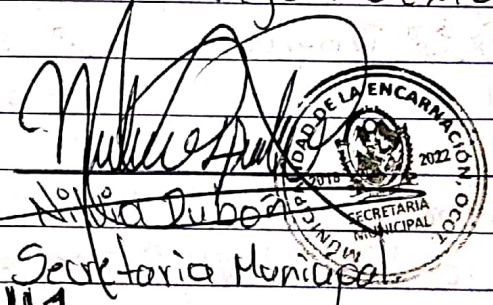 Nilvia Dubón
Secretaria Municipal
MUNICIPALIDAD DE LA ENCARNACIÓN, OCOT.
2018 2022
SECRETARIA
MUNICIPAL